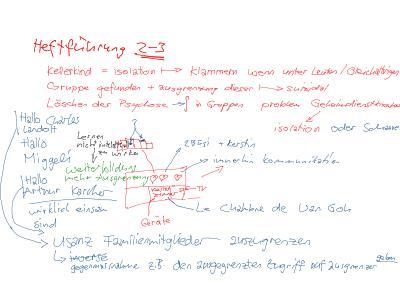 Heftführung 2-3
Kellerkind = isolation → Klammern wenn unter Leuten/Gleichaltrigen
Gruppe gefunden + ausgrenzung dieser → suizidal
Löschen der Psychose → in Gruppen problem Geheimdienst
isolation oder
Hallo Charles
Landolt
Hallo
Miggeli
Hallo
Arthur Karcher
wirklich einsam
sind
Lernen
nicht
zu wirken
weiterbildung
mehr ausgrenzung
2BESi + Kerstin
immerhin kommunikation
TV
Geräte
La Chambre de Van Goh
Usanz Familienmitglieder auszugrenzen
inverse
gegenmassnahme z.B. den ausgegrenzten zugriff auf ausgrenzer geben